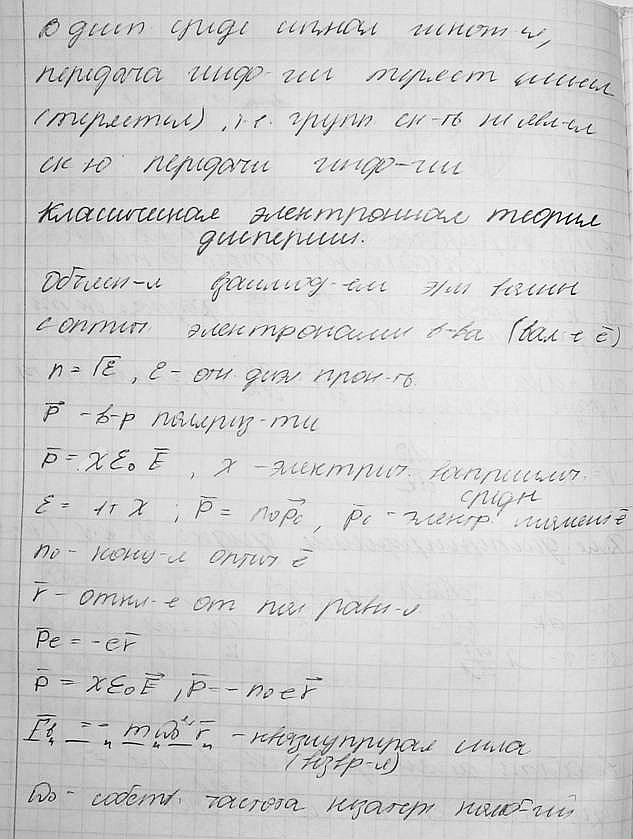 В дисп среде сигнал
передача инфо-ции теряет смысл
(теряется), т.е. групп ск-ть не явл-ся
ск-ю передачи инфо-ции
Классическая электронная теория
дисперсии.
Объясн-я взаимод-ем э/м волны
с оптич электронами в-ва (вал-е ē)
n = √ε, ε – отн. диэл прон-ть
P⃗ – в-р поляриз-ти
P̄ = χε₀Ē, χ – электрич. восприимч.
среды
ε = 1+χ ; P̄ = n₀p⃗e, p̄e – электр. момент ē
n₀ – конц-я оптич ē
r̄ – откл-е от пол равн-я
P̄e = -er̄
P̄ = χε₀E⃗, P̄ = -n₀er⃗
F̄в = -mω₀²r̄ – квазиупругая сила
(возвр-я)
ω₀ – собств. частота незатух колеб-ий